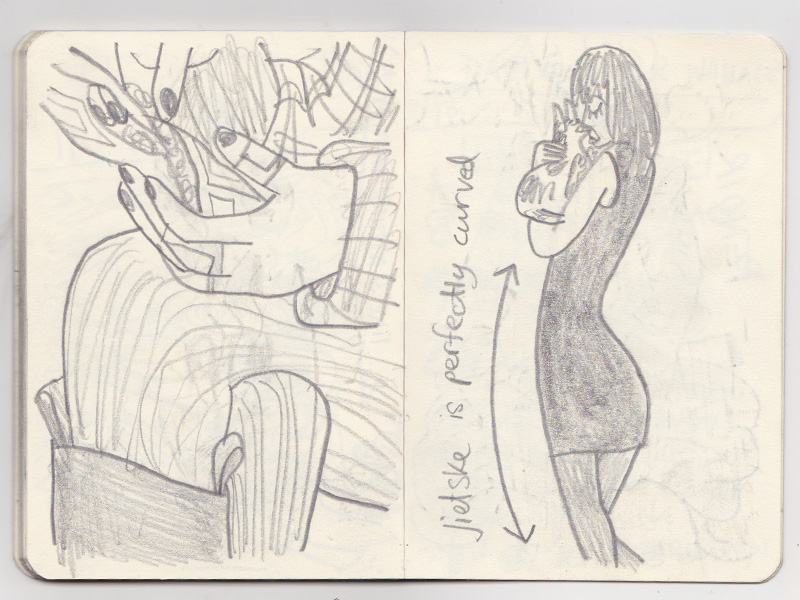 Jietske is perfectly curved